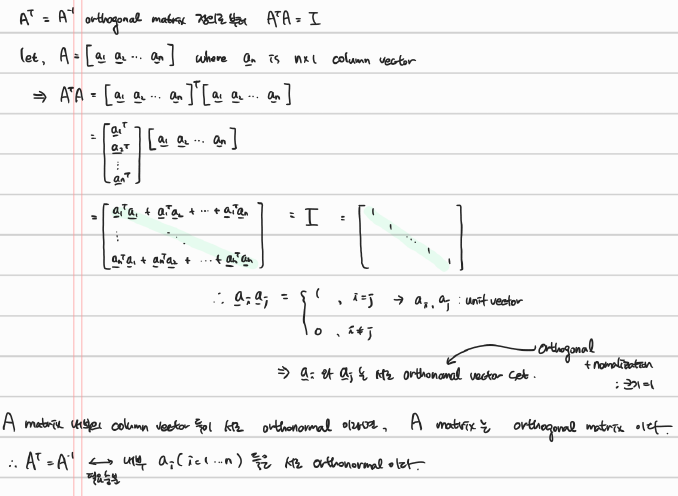 Aᵀ = A⁻¹ orthogonal matrix 정의로 부터 AᵀA = I
let, A = [a₁ a₂ ⋯ aₙ] where aₙ is n×1 column vector
⇒ AᵀA = [a₁ a₂ ⋯ aₙ]ᵀ [a₁ a₂ ⋯ aₙ]
= [a₁ᵀ a₂ᵀ ⋮ aₙᵀ] [a₁ a₂ ⋯ aₙ]
= [a₁ᵀa₁ + a₁ᵀa₂ + ⋯ + a₁ᵀaₙ ⋮ ⋱ aₙᵀa₁ + aₙᵀa₂ + ⋯ + aₙᵀaₙ] = I = [1 1 ⋱ 1 1]
∴ aᵢ aⱼ = { 1 , i=j → aᵢ, aⱼ : unit vector
0 , i≠j
Orthogonal
+ nomalization
: 크기=1
⇒ aᵢ 와 aⱼ 는 서로 orthonomal vector set.
A matrix 내부의 column vector 들이 서로 orthonormal 이라면, A matrix는 orthogonal matrix 이다.
∴ Aᵀ = A⁻¹ ⟷ 내부 aᵢ (i=1 ⋯ n) 들은 서로 orthonormal 이다.
필요충분